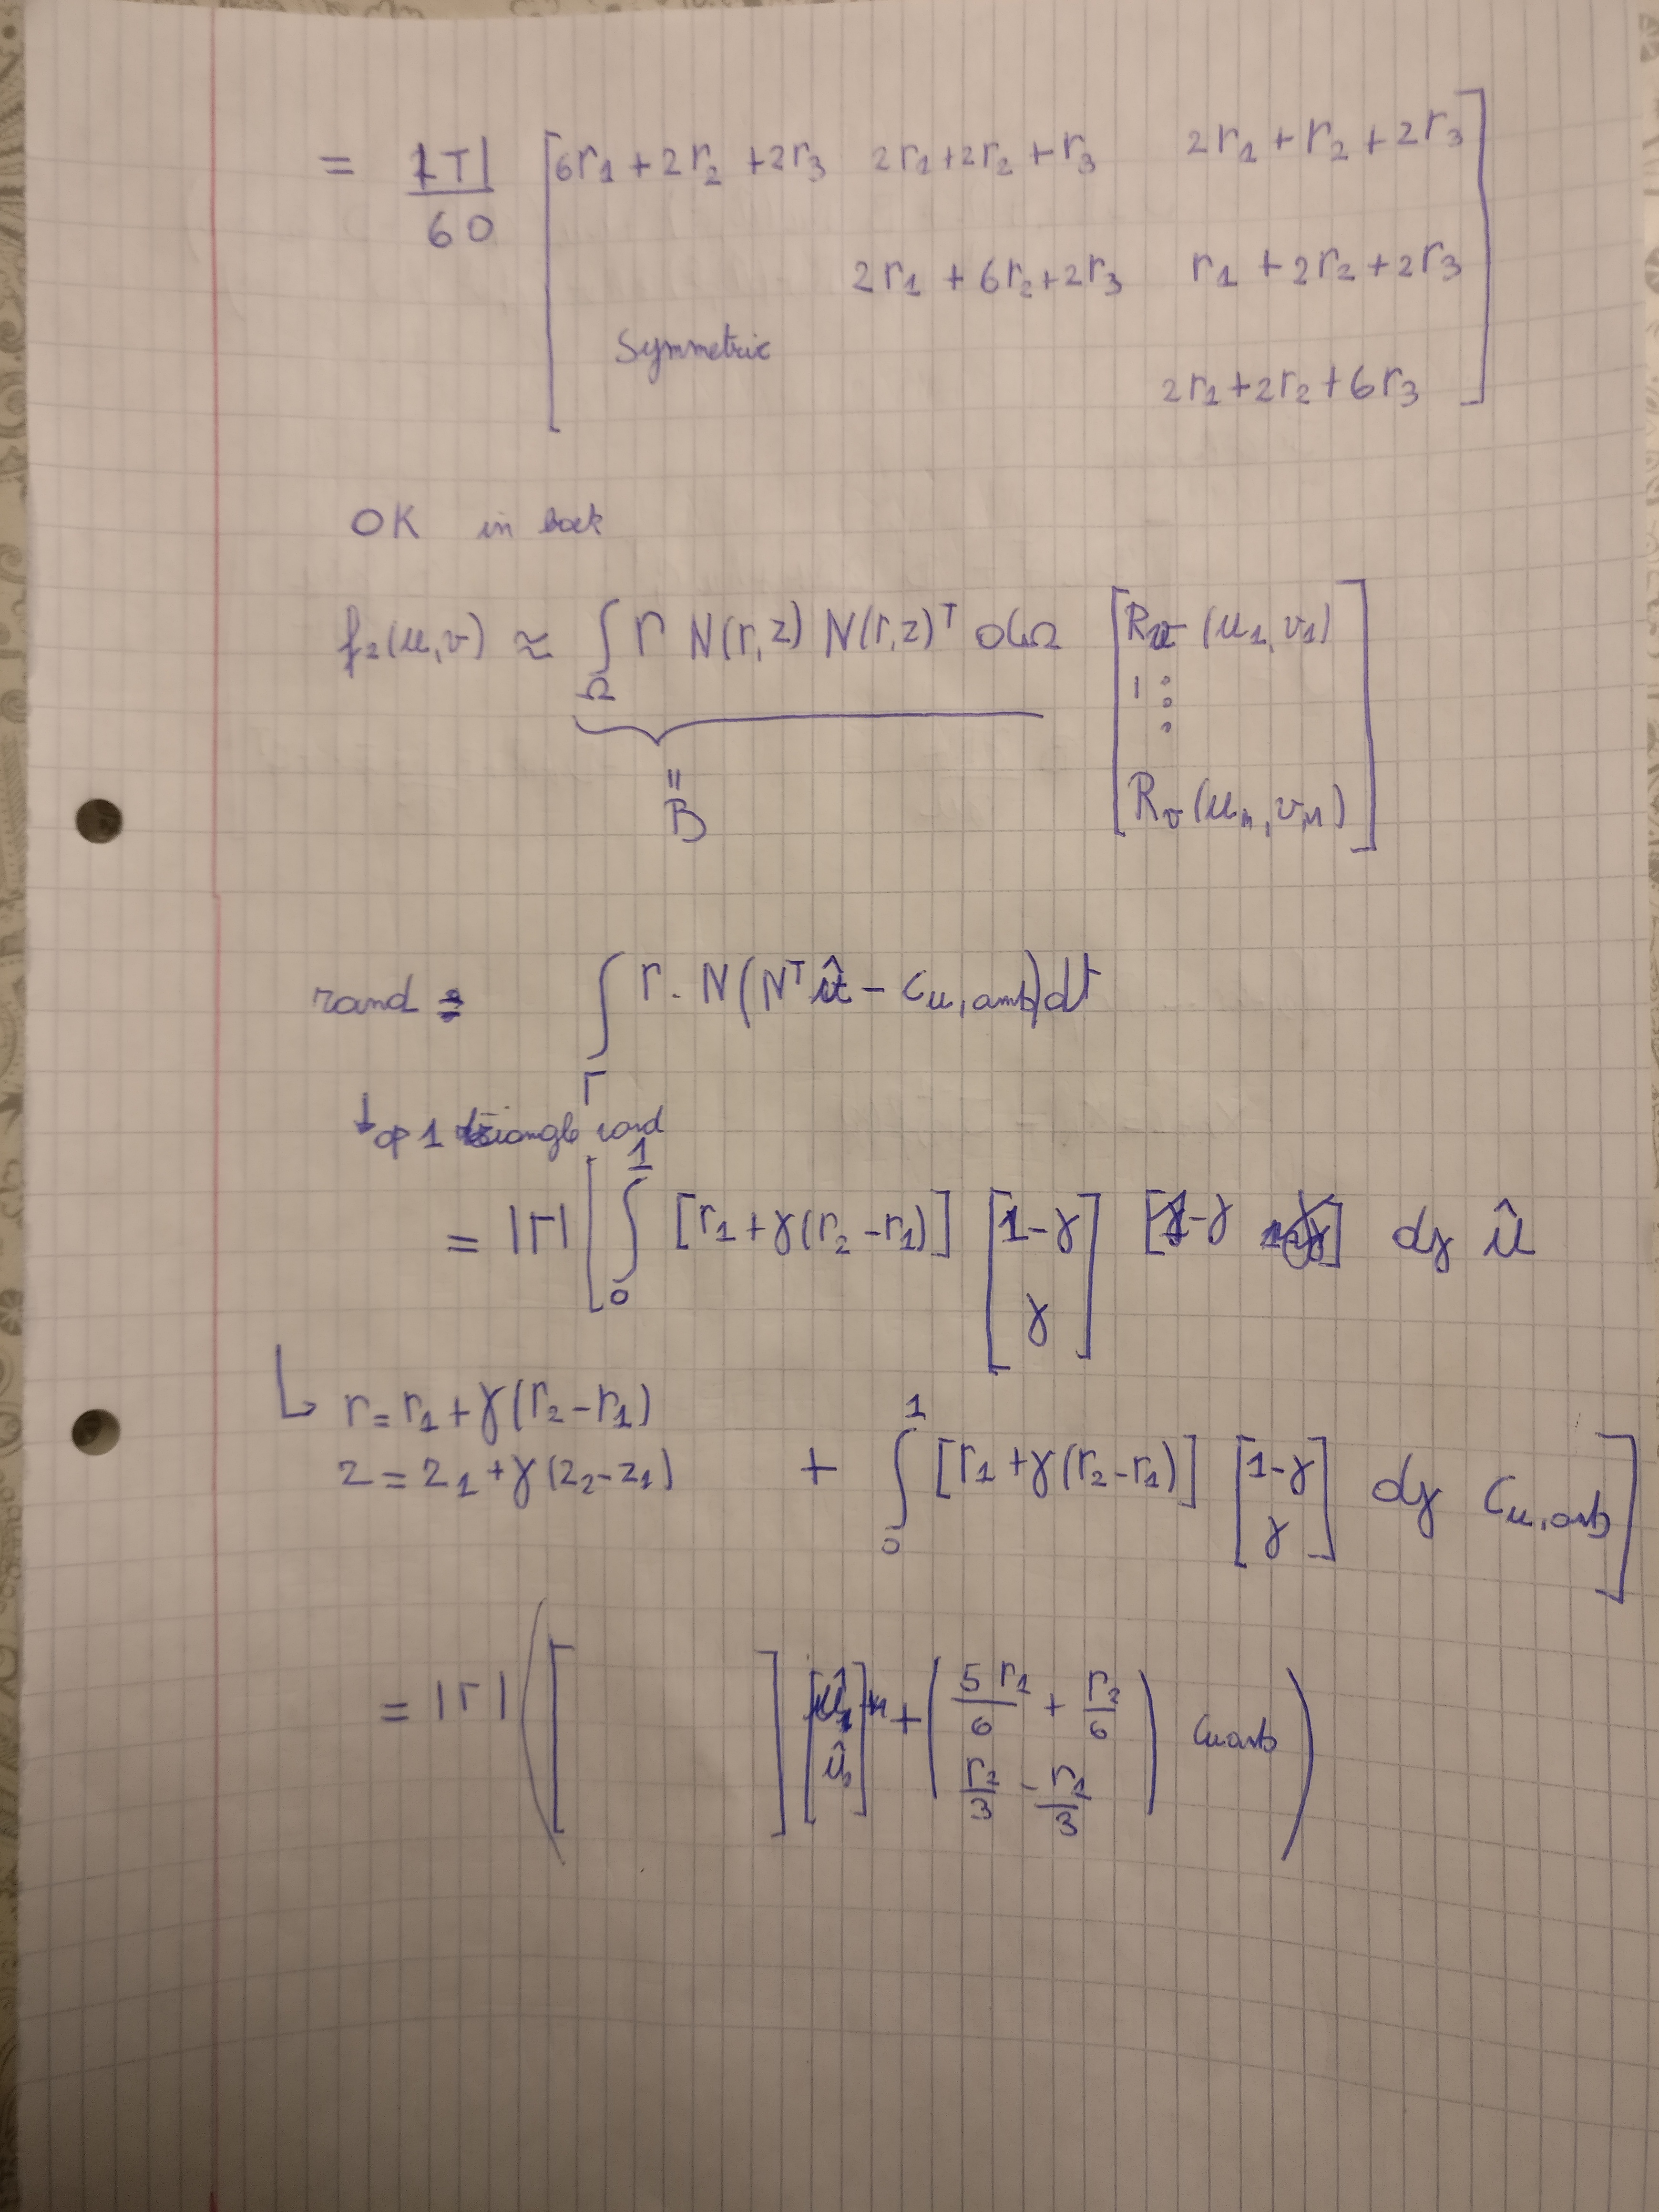 = |T|/60 [6r₁ + 2r₂ + 2r₃ 2r₁ + 2r₂ + r₃ 2r₁ + r₂ + 2r₃
2r₁ + 6r₂ + 2r₃ r₁ + 2r₂ + 2r₃
Symmetric
2r₁ + 2r₂ + 6r₃]
OK in boek
f₂(u,v) ≈ ∫_Ω r N(r,z) N(r,z)ᵀ dΩ [R (u₁,v₁)
⋮
Rᵥ(uₙ,vₙ)]
"
B
rand = ∫_Γ r. N(Nᵀû − C_u,amb)dΓ
↓ op 1 triangle rand
= |Γ| [∫₀¹ [r₁ + γ(r₂ − r₁)] [1−γ γ] [1−γ γ] dγ û
↳ r = r₁ + γ(r₂ − r₁)
z = z₁ + γ(z₂ − z₁)
+ ∫₀¹ [r₁ + γ(r₂ − r₁)] [1−γ γ] dγ C_u,amb]
= |Γ| ([ ] [û₁ û₂] + (5r₁/6 + r₂/6
r₂/3 − r₁/3) C_u amb)